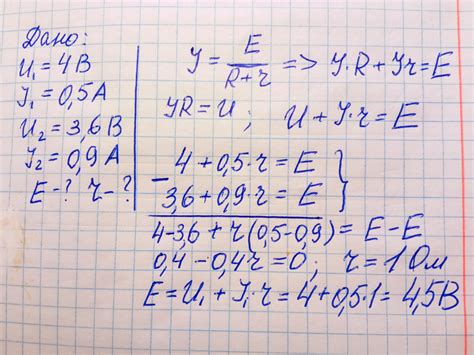 Дано:
U₁ = 4 В
J₁ = 0,5 А
U₂ = 3,6 В
J₂ = 0,9 А
E - ? r - ?
J = E / (R + r) => J·R + Jr = E
JR = U ; U + J·r = E
4 + 0,5·r = E }
- 3,6 + 0,9·r = E }
4 - 3,6 + r(0,5 - 0,9) = E - E
0,4 - 0,4r = 0 ; r = 1 Ом
E = U₁ + J₁·r = 4 + 0,5·1 = 4,5 В